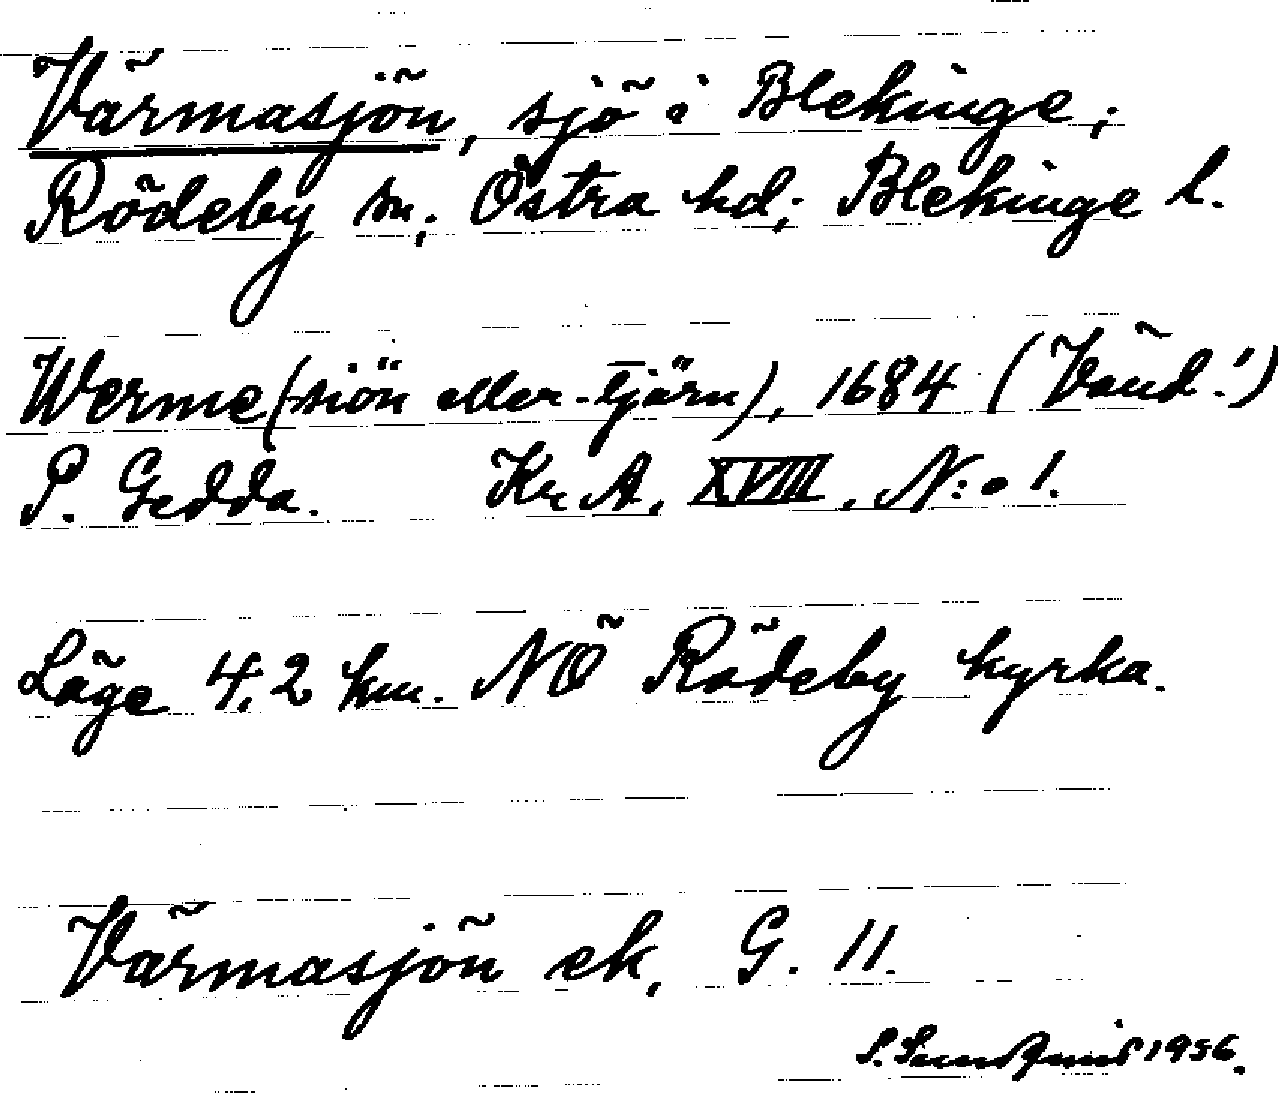 Värmasjön, sjö i Blekinge;
Rödeby sn; Östra hd; Blekinge l.
Werme(siön eller-tjärn), 1684 (Vänd!)
P. Gedda. Kr A, XVIII, N:o 1.
Läge 4,2 km. NÖ Rödeby kyrka.
Värmasjön ek, G. 11.
S. 1956.